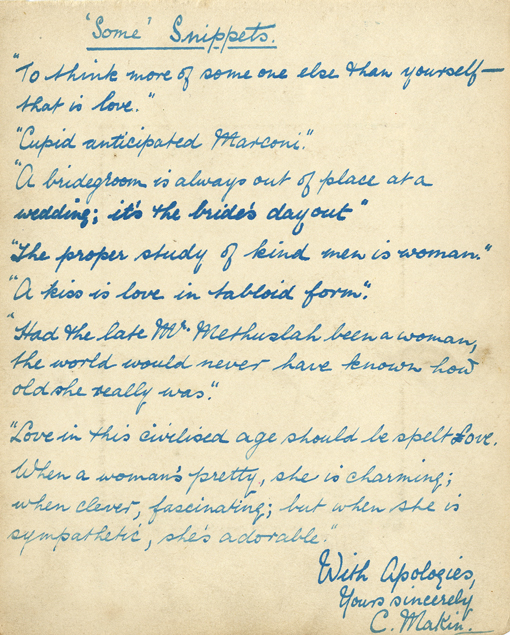 "Some" Snippets.
"To think more of some one else than yourself—
that is love."
"Cupid anticipated Marconi."
"A bridegroom is always out of place at a
wedding; it's the bride's day out"
"The proper study of kind men is woman."
"A kiss is love in tabloid form".
"Had the late Mr. Methuslah been a woman,
the world would never have known how
old she really was."
"Love in this civilised age should be spelt £ove.
When a woman's pretty, she is charming;
when clever, fascinating; but when she is
sympathetic, she's adorable."
With Apologies,
Yours sincerely
C. Makin.